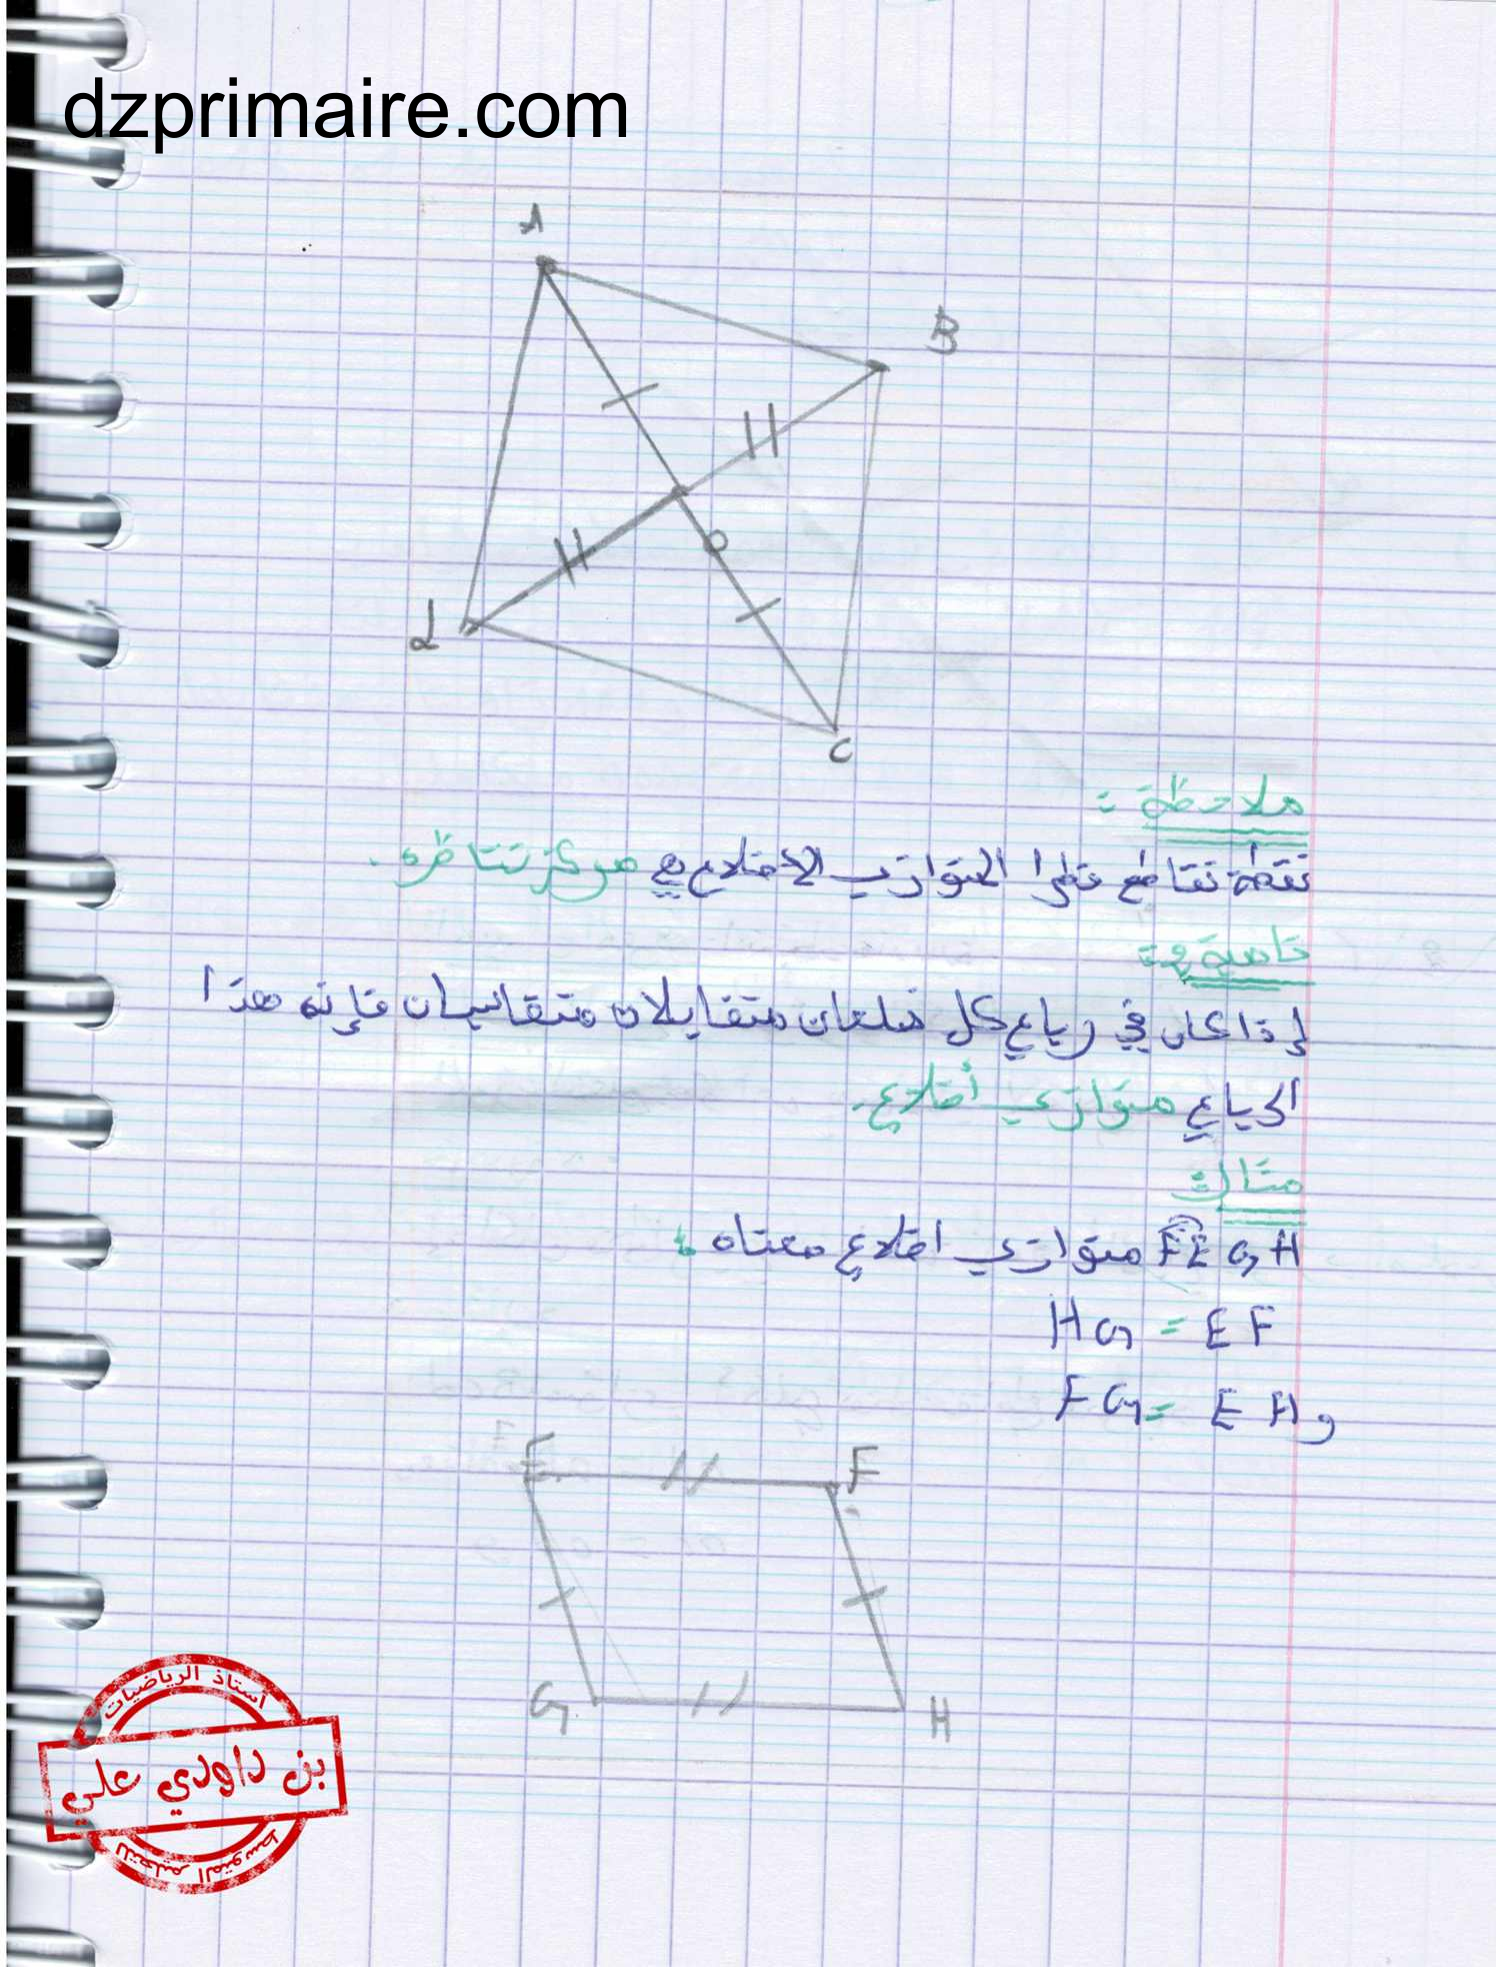 dzprimaire.com
A
B
d
C
ملاحظة :
نقطة تقاطع قطرا المتوازي الأضلاع هي مركز تناظره.
خاصية 2:
إذا كان في رباعي كل ضلعان متقابلان متقايسان فإنه هذا
الرباعي متوازي أضلاع.
مثال:
FEGH متوازي اضلاع معناه :
HG = EF
FG = EH و
E
F
G
H
أستاذ الرياضيات
بن داودي علي
للتعليم المتوسط